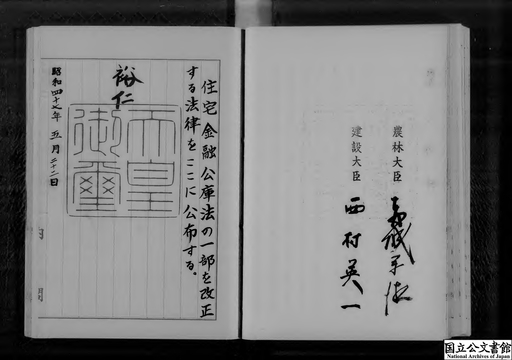 住宅金融公庫法の一部を改正
する法律をここに公布する。
裕仁
天皇
御璽
昭和四十七年五月二十二日
農林大臣
建設大臣 西村英一
国立公文書館
National Archives of Japan